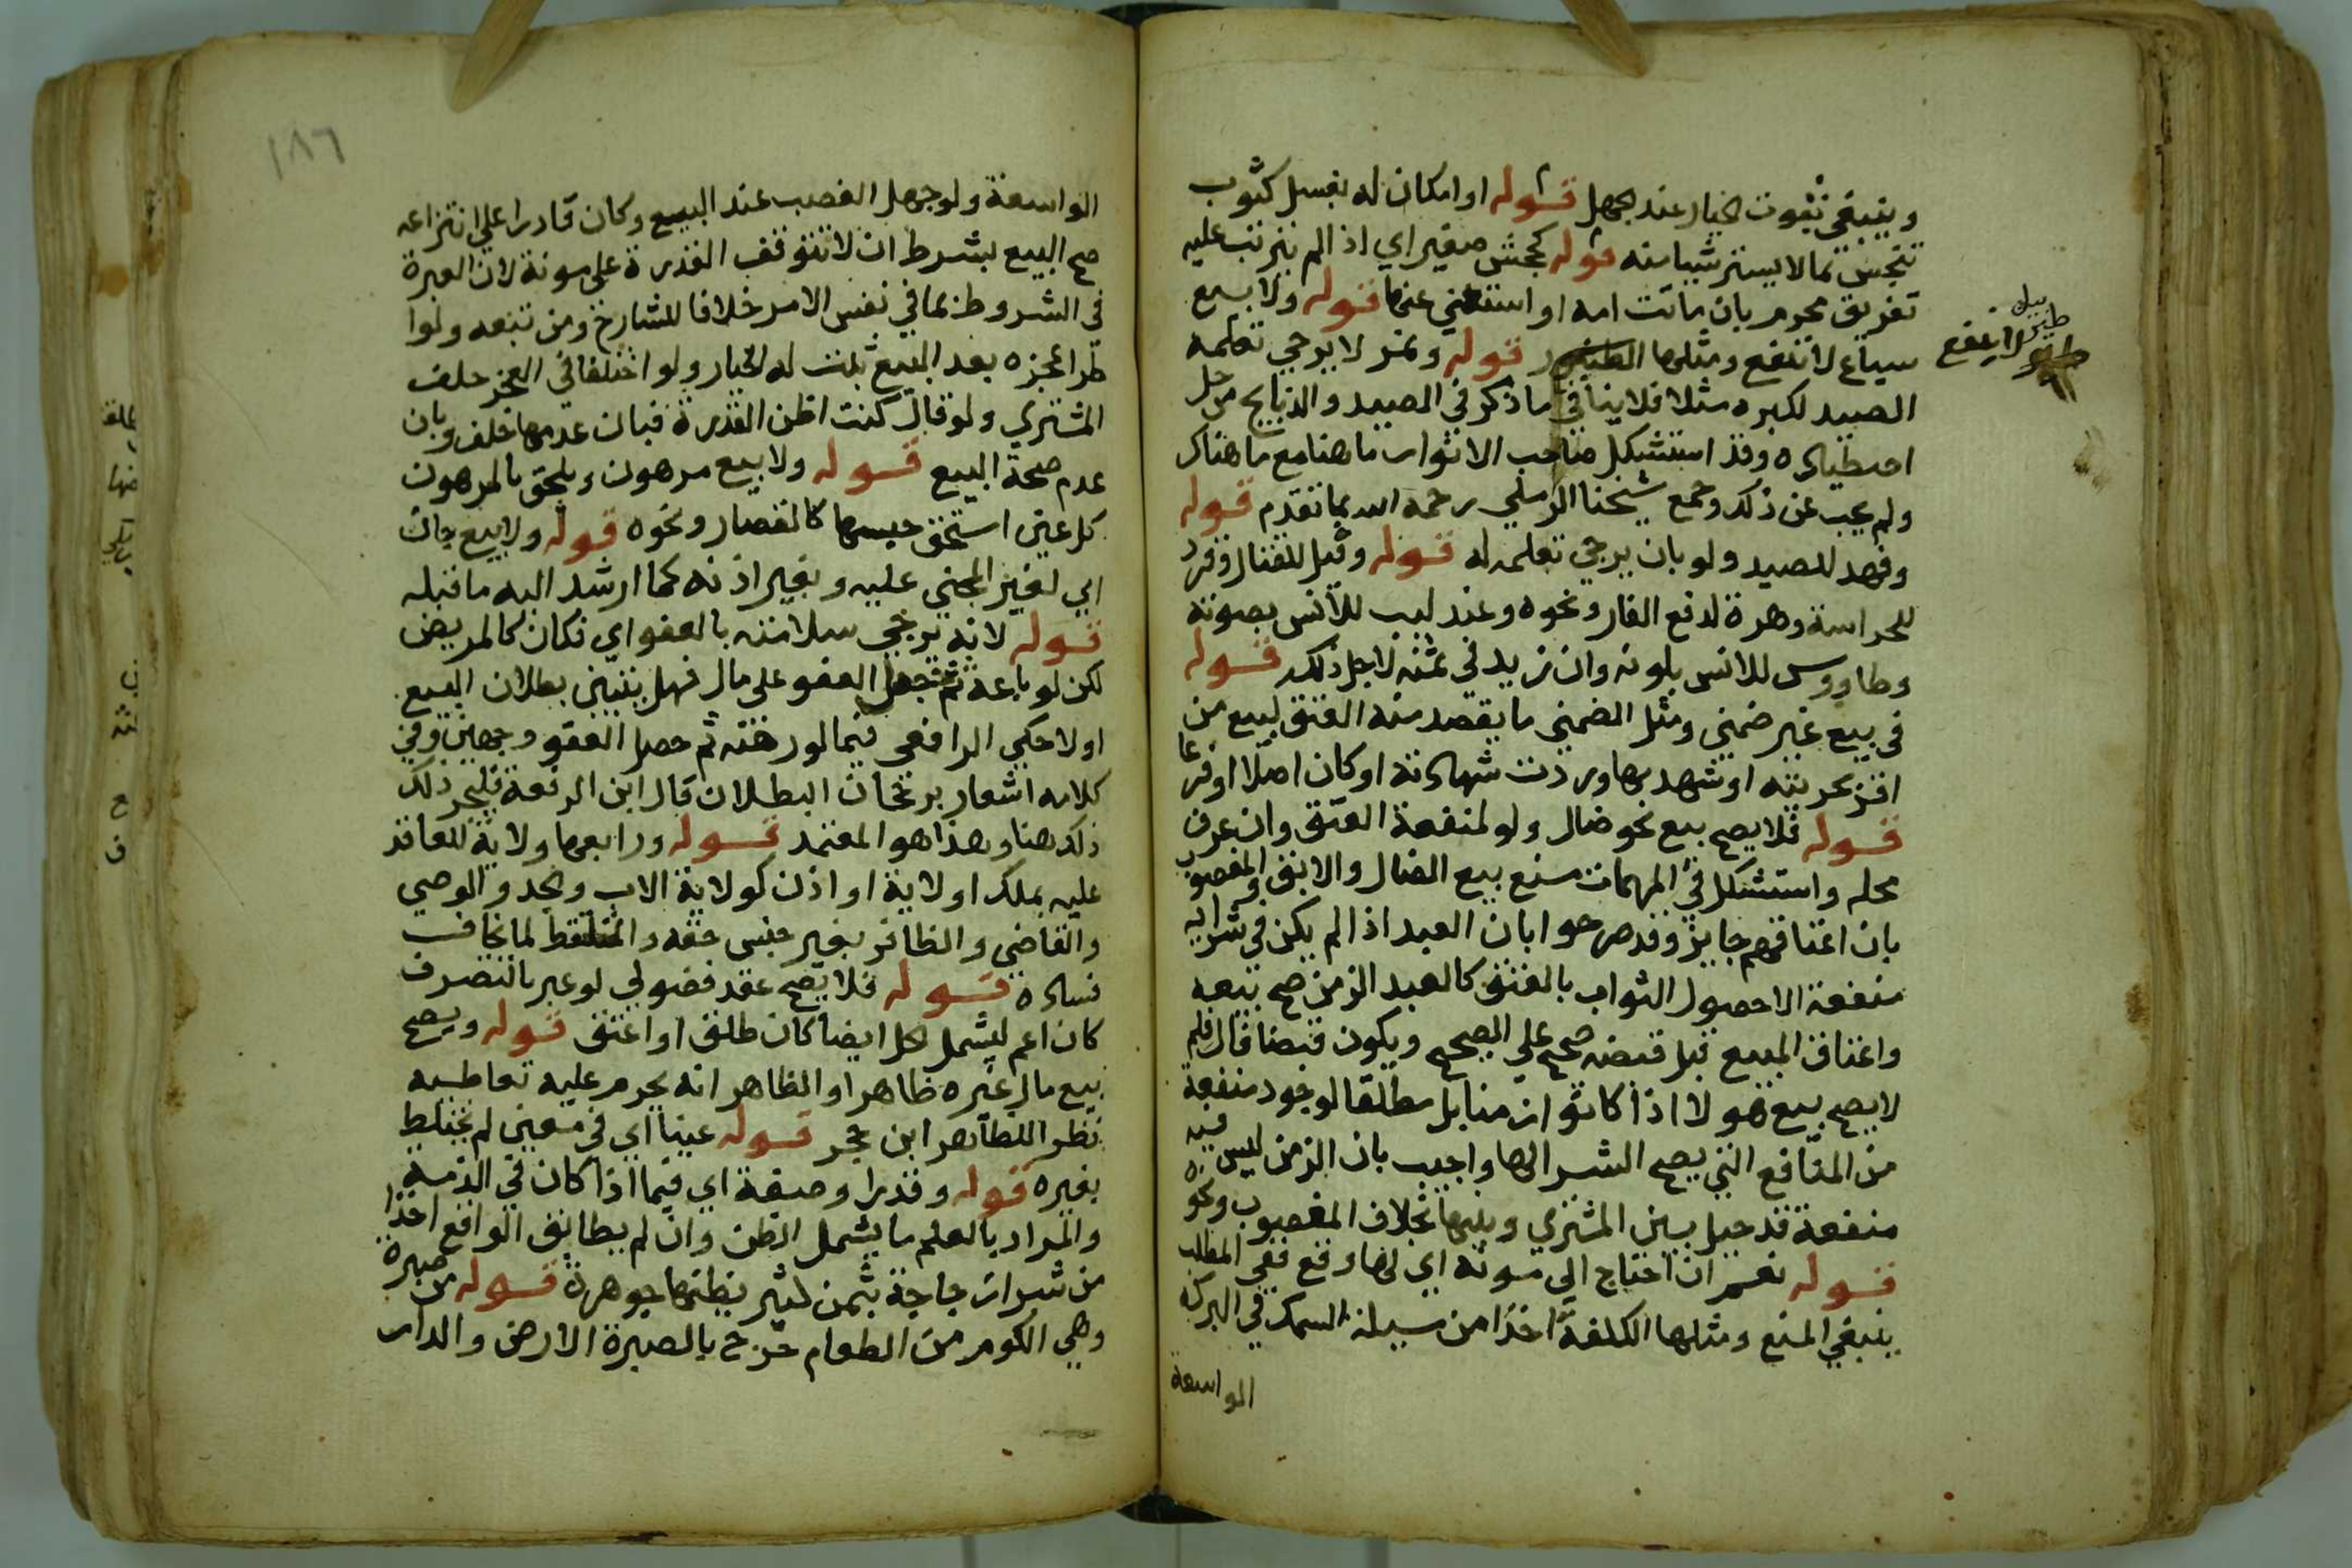 وينبغي ثبوت الخيار عند الجهل قوله او امكان له بغسل كثوب
تنجس بما لا يستر شيا منه قوله كجحش صغير اي اذا لم يترتب عليه
تفريق محرم بان ماتت امه او استغني عنها قوله ولا بيع
سباع لا تنفع ومثلها قوله ونمر لا يرجي تعلمه
الصيد لكبره مثلا فلا ينافي ما ذكر في الصيد والذبايح من حل
اصطياده وقد استشكل صاحب الانوار ما هنا مع ما هناك
ولم يجب عن ذلك وجمع شيخنا الرملي رحمه الله بما تقدم قوله
وفهد للصيد ولو بان يرجي تعلمه له قوله وفيل للقتال وقرد
للحراسة وهرة لدفع الفار ونحوه وعندليب للانس بصوته
وطاووس للانس بلونه وان زيد في ثمنه لاجل ذلك قوله
في بيع غير ضمني ومثل الضمني ما يقصد منه العتق لبيع من
اقر بحريته او شهد بها وردت شهادته او كان اصلا او فرعا
قوله فلا يصح بيع نحو ضال ولو لمنفعة العتق وان عرف
محله واستشكل في المهمات منع بيع الضال والابق والمغصوب
بان اعتاقهم جايز وقد صرحوا بان العبد اذا لم يكن في شرايه
منفعة الا حصول الثواب بالعتق كالعبد الزمن صح بيعه
واعتاق المبيع قبل قبضه صحيح علي الصحيح ويكون قبضا قال فلم
لا يصح بيع هولا اذا كانوا زمنا بل مطلقا لوجود منفعة
من المنافع التي يصح الشرا لها واجيب بان الزمن ليس فيه
منفعة قد حيل بين المشتري وبينها بخلاف المغصوب ونحوه
قوله نعم ان احتاج الي مونة اي لها وقع ففي المطلب
ينبغي المنع ومثلها الكلفة اخذا من سيلة السمك في البركة
الواسعة
طير
لا ينفع
١٨٦
الواسعة ولو جهل الغصب عند البيع وكان قادرا علي انتزاعه
صح البيع بشرط ان لا تتوقف القدرة علي مونة لان العبرة
في الشروط بما في نفس الامر خلافا للشارح ومن تبعه ولو
طرا عجزه بعد البيع ثبت له الخيار ولو اختلفا في العجز حلف
المشتري ولو قال كنت اظن القدرة فبان عدمها حلف وبان
عدم صحة البيع قوله ولا بيع مرهون ويلحق بالمرهون
كل عين استحق حبسها كالقصار ونحوه قوله ولا بيع جان
اي لغير المجني عليه وبغير اذنه كما ارشد اليه ما قبله
قوله لانه ترجي سلامته بالعفو اي فكان كالمريض
لكن لو باعه ثم حصل العفو علي مال فهل يتبين بطلان البيع
اولا حكي الرافعي فيما لو رهنه ثم حصل العفو وجهين وفي
كلامه اشعار برجحان البطلان قال ابن الرفعة فليجر ذلك
ذلك هنا وهذا هو المعتمد قوله ورابعها ولاية للعاقد
عليه بملك او لاية او اذن كولاية الاب والجد والوصي
والقاضي والظافر بغير جنس حقه والملتقط لما يخاف
فساده قوله فلا يصح عقد فضولي لو عبر بالتصرف
كان اعم ليشمل الحل ايضا كان طلق او اعتق قوله ويصح
بيع مال غيره ظاهرا والظاهر انه يحرم عليه تعاطيه
نظرا للظاهر ابن حجر قوله عينا اي في معين لم يختلط
بغيره قوله وقدرا وصفة اي فيما اذا كان في الذمة
والمراد بالعلم ما يشمل الظن وان لم يطابق الواقع اخذا
من شرا زجاجة بثمن كثير يظنها جوهرة قوله من صبرة
وهي الكوم من الطعام خرج بالصبرة الارض والدار